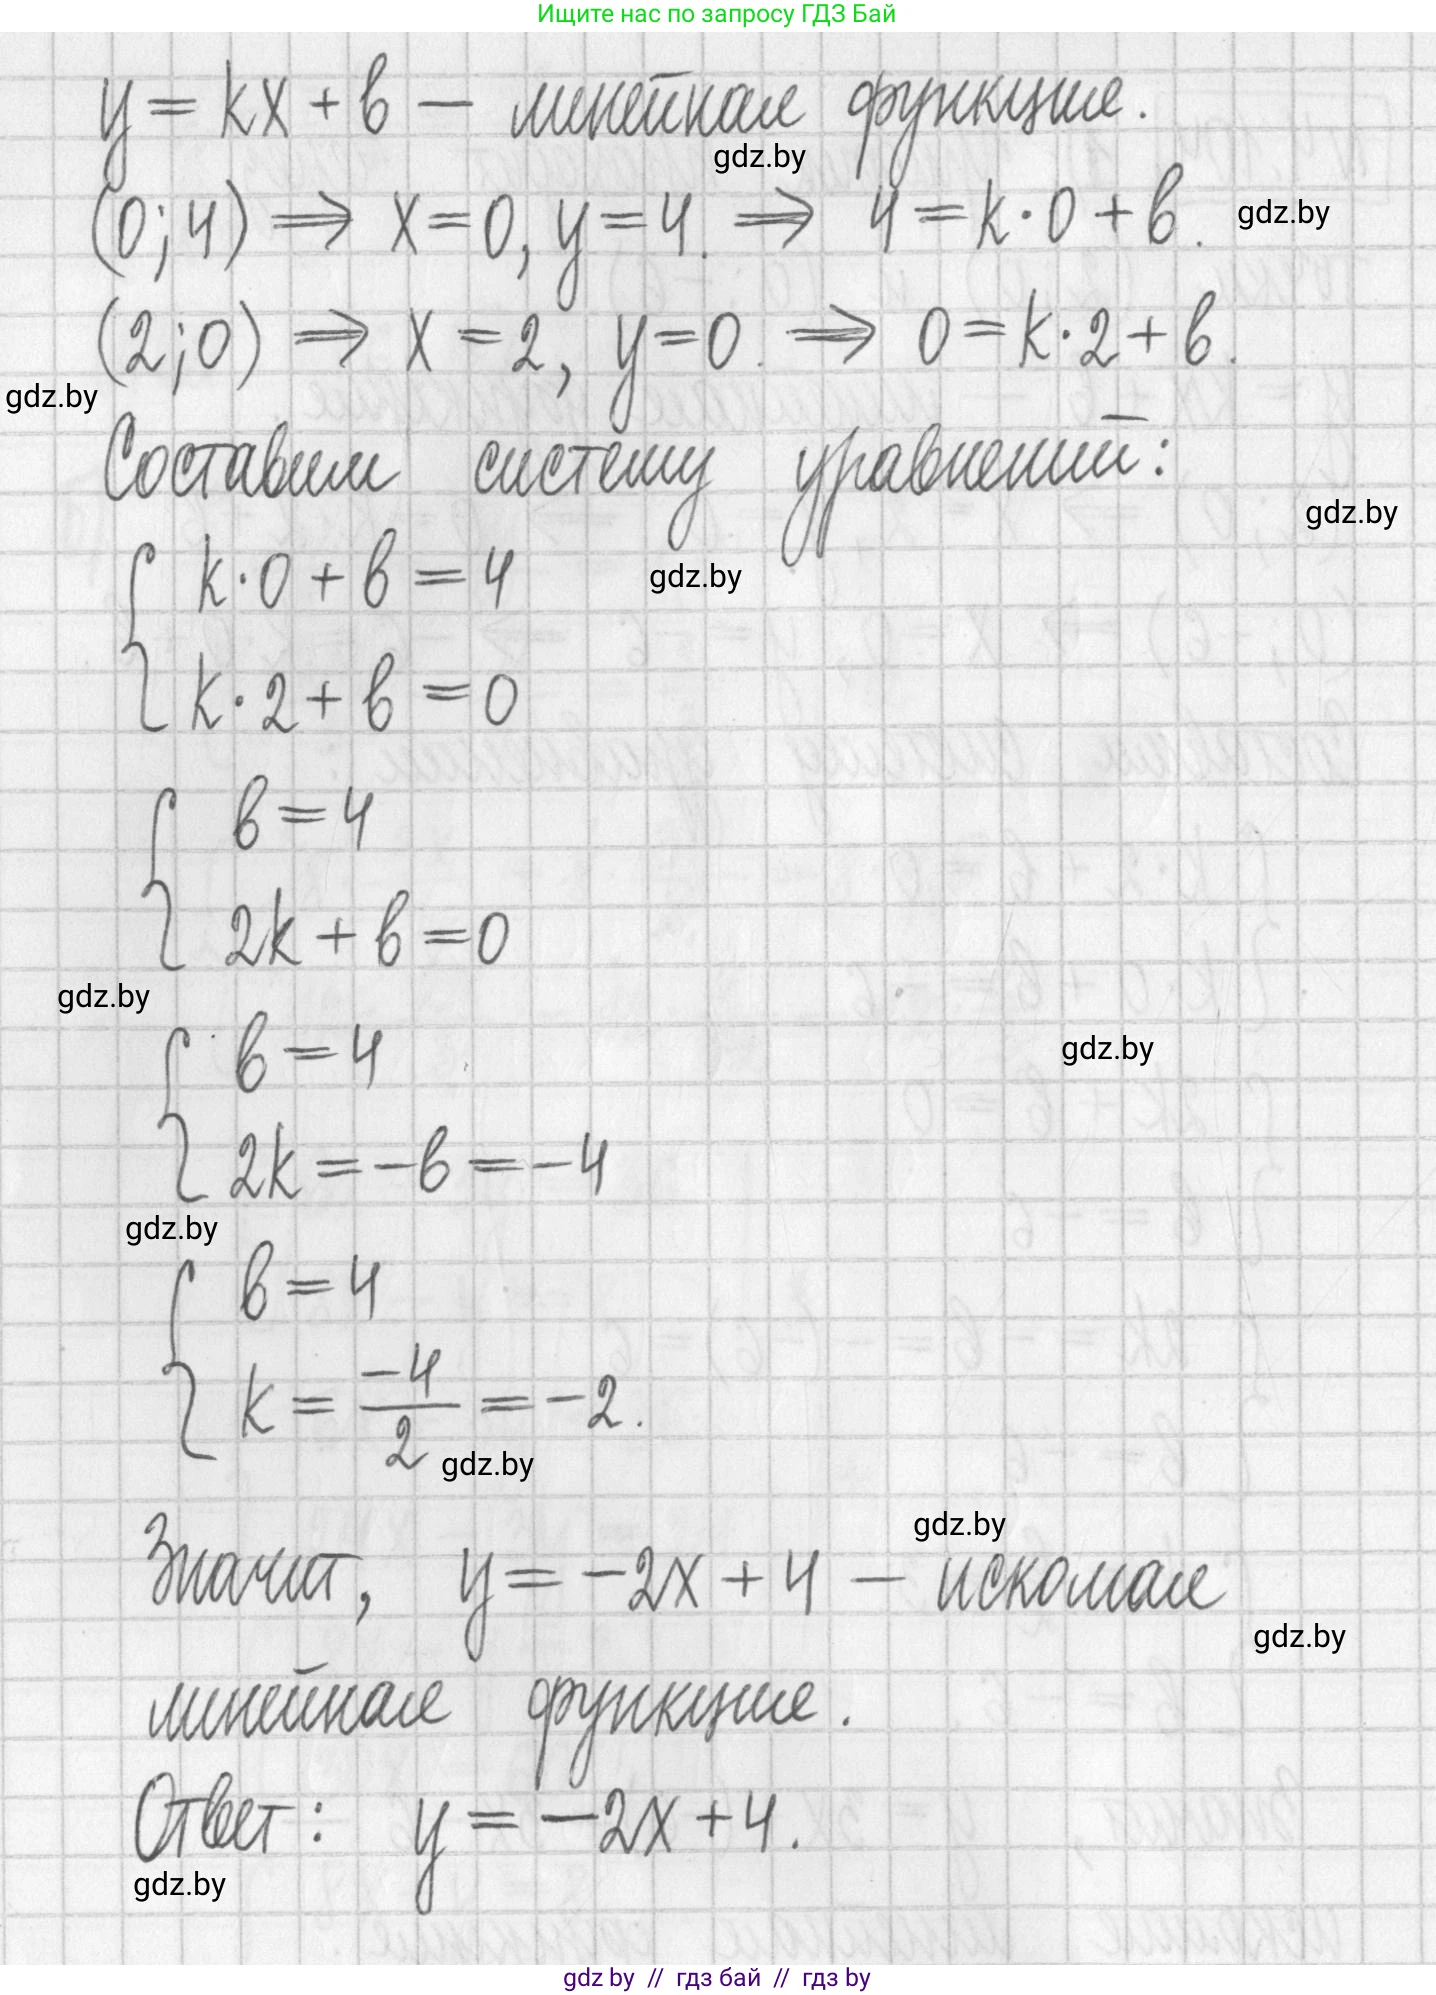 Ищите нас по запросу ГДЗ Бай
y = kx + b — линейная функция.
gdz.by
(0;4) ⇒ x = 0, y = 4. ⇒ 4 = k·0 + b.
gdz.by
(2;0) ⇒ x = 2, y = 0. ⇒ 0 = k·2 + b.
gdz.by
Составим систему уравнений:
gdz.by
{ k·0 + b = 4
gdz.by
k·2 + b = 0
{ b = 4
2k + b = 0
gdz.by
{ b = 4
gdz.by
2k = -b = -4
gdz.by
{ b = 4
k = -4/2 = -2.
gdz.by
gdz.by
Значит, y = -2x + 4 — искомая
gdz.by
линейная функция.
Ответ: y = -2x + 4.
gdz.by
gdz by // гдз бай // гдз by